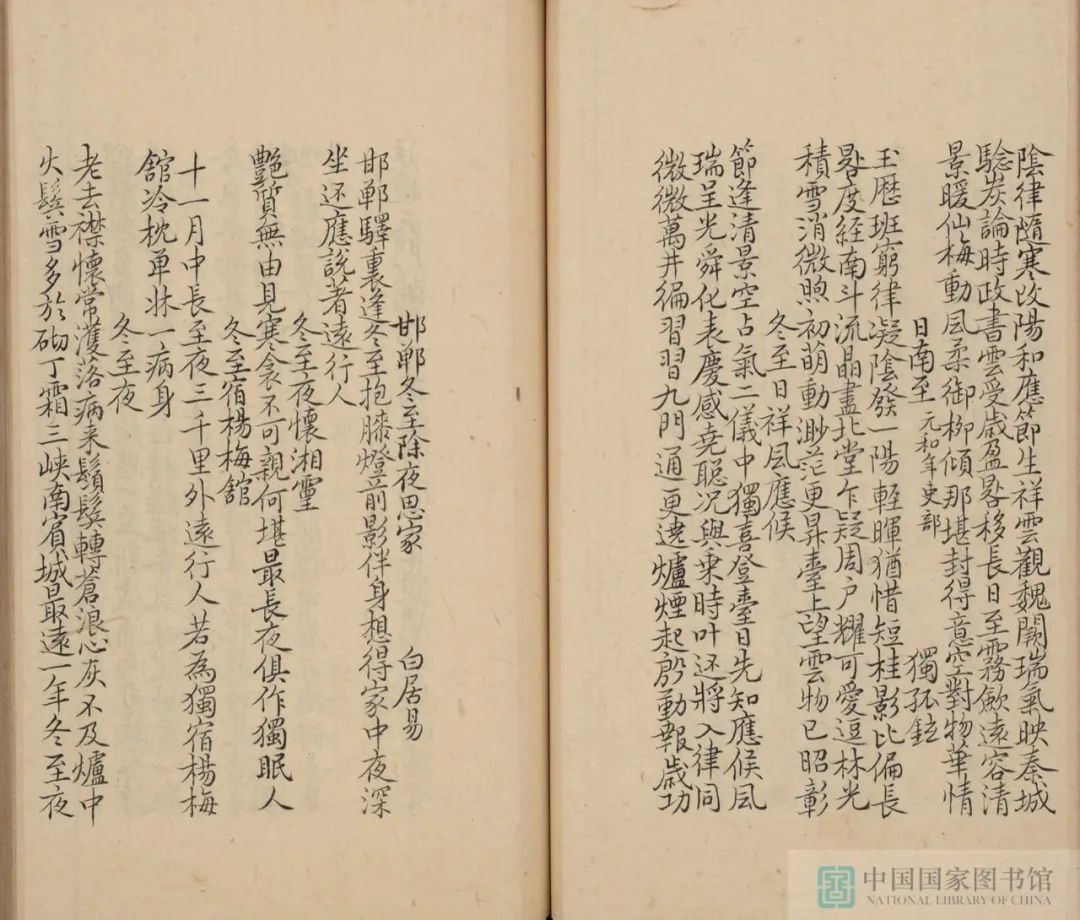 陰律隨寒改陽和應節生祥雲觀魏闕瑞氣映秦城
驗炭論時政書雲受歲盈晷移長日至霧歛遠容清
景暖仙梅動風柔御柳傾那堪封得意空對物華情
日南至 元和年吏部 獨孤鉉
玉厯班窮律凝陰發一陽輕暉猶惜短桂影比偏長
晷度經南斗流晶盡北堂乍疑周户耀可愛逗林光
積雪消微煦初萌動渺茫更昇臺上望雲物已昭彰
冬至日祥風應候
節逢清景空占氣二儀中獨喜登臺日先知應候風
瑞呈光舜化表慶感堯聡况與乗時叶还將入律同
微微萬井徧習習九門通更遶爐煙起殷勤報歳功
邯鄲冬至除夜思家 白居易
邯鄲驛裏逢冬至抱膝燈前影伴身想得家中夜深
坐还應説著遠行人
冬至夜懷湘靈
艷質無由見寒衾不可親何堪最長夜俱作獨眠人
冬至宿楊梅舘
十一月中長至夜三千里外遠行人若為獨宿楊梅
舘冷枕单牀一病身
冬至夜
老去襟懷常濩落病来鬚鬂轉蒼浪心灰不及爐中
火鬂雪多於砌丁霜三峡南賓城最遠一年冬至夜
中国国家图书馆
NATIONAL LIBRARY OF CHINA